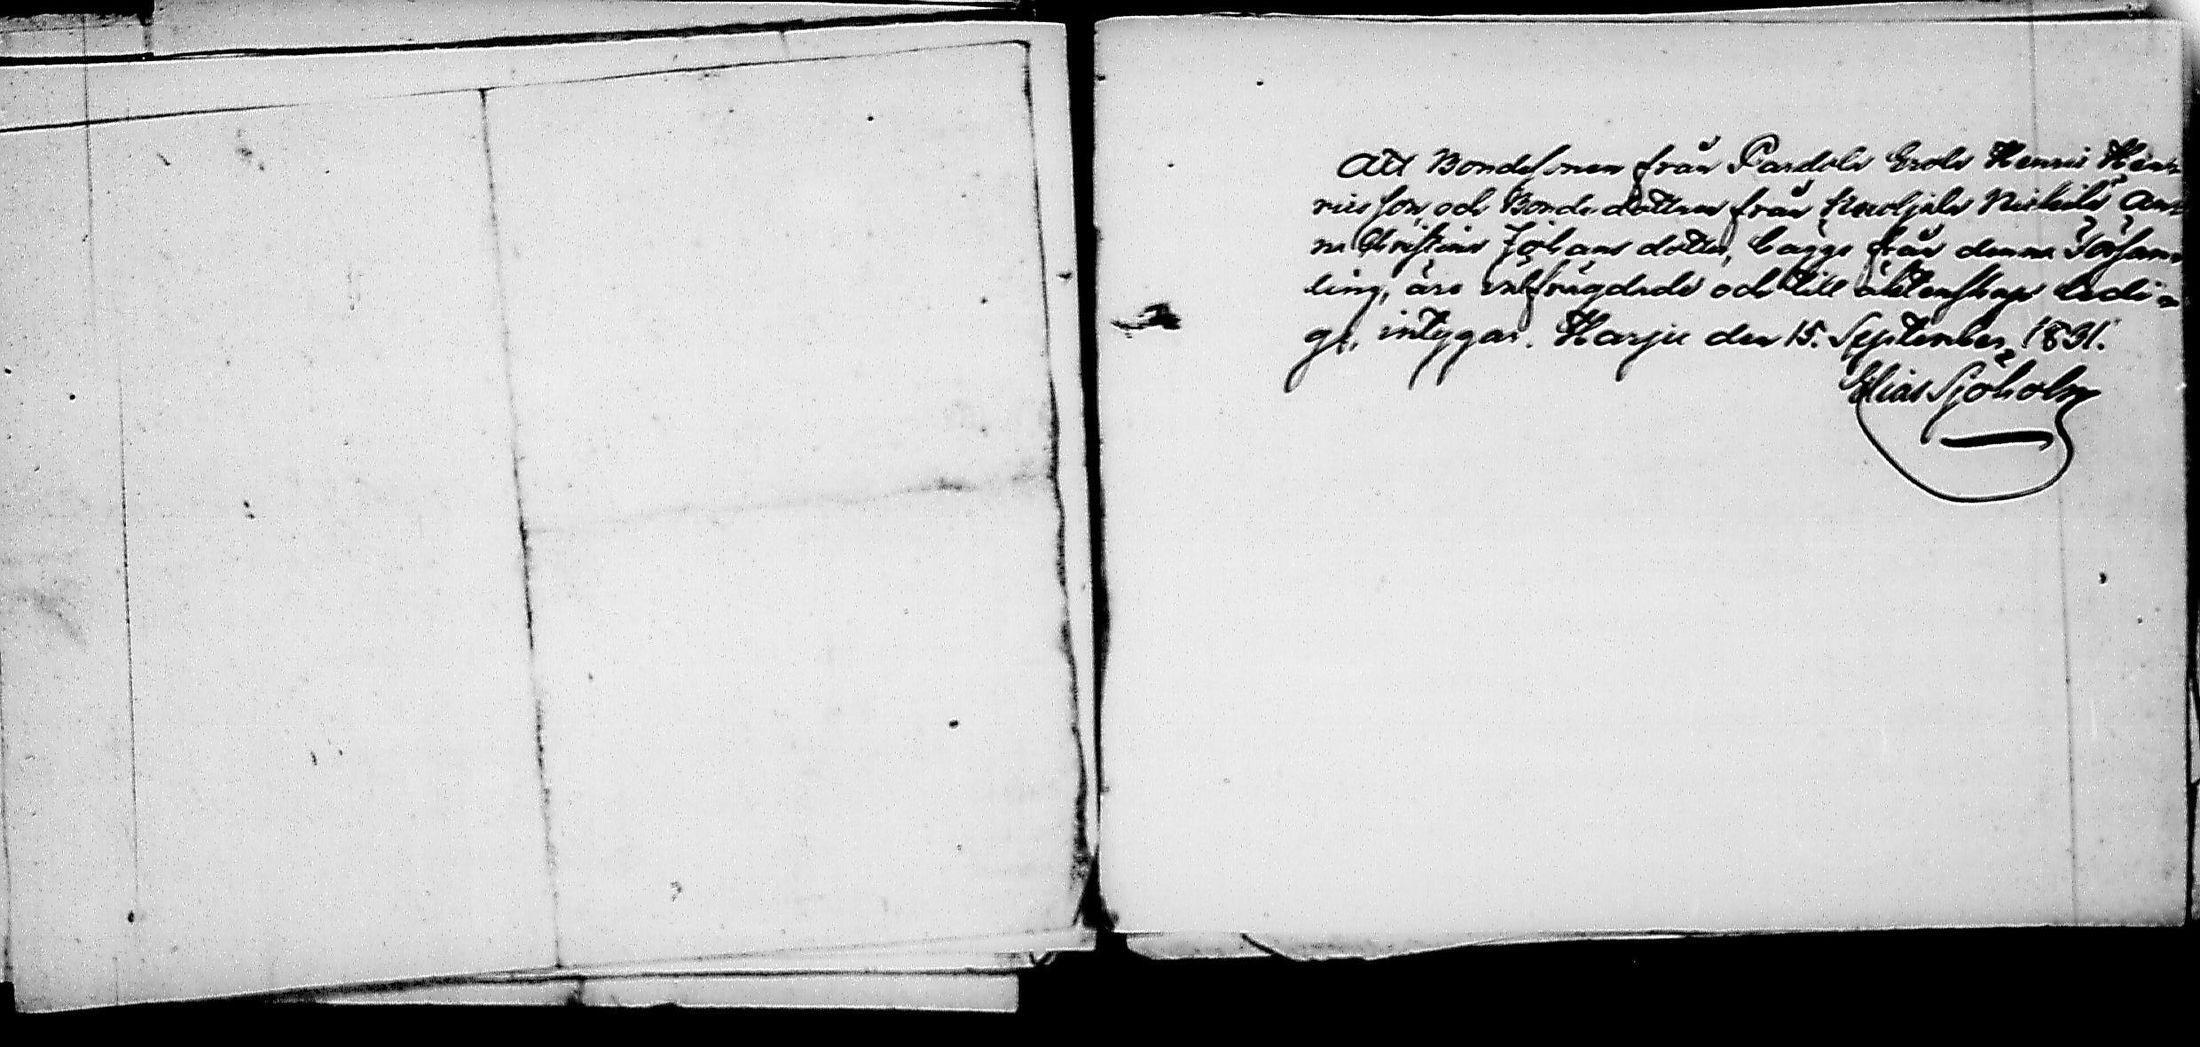 Att Bondesonen från Pardola Erola Henric Hen-
ricsson, och Bondedottren från Nickilä An-
na Christina Johansdotter, bägge från denna Församm-
ling, äro välfrägdade och till äktenskap ledi-
ga, intygar. Harju den 15. September, 1831.
Elias Sjöholm